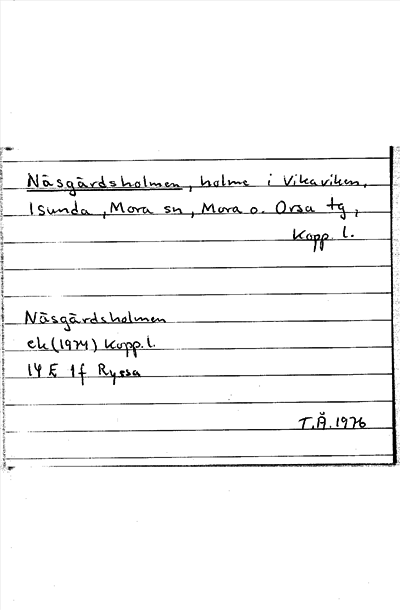 Näsgårdsholmen, holme i Vikaviken,
Isunda, Mora sn, Mora o. Orsa tg,
Kopp. l.
Näsgårdsholmen
ek (1974) Kopp. l.
14 E 1f Ryssa
T.Å. 1976